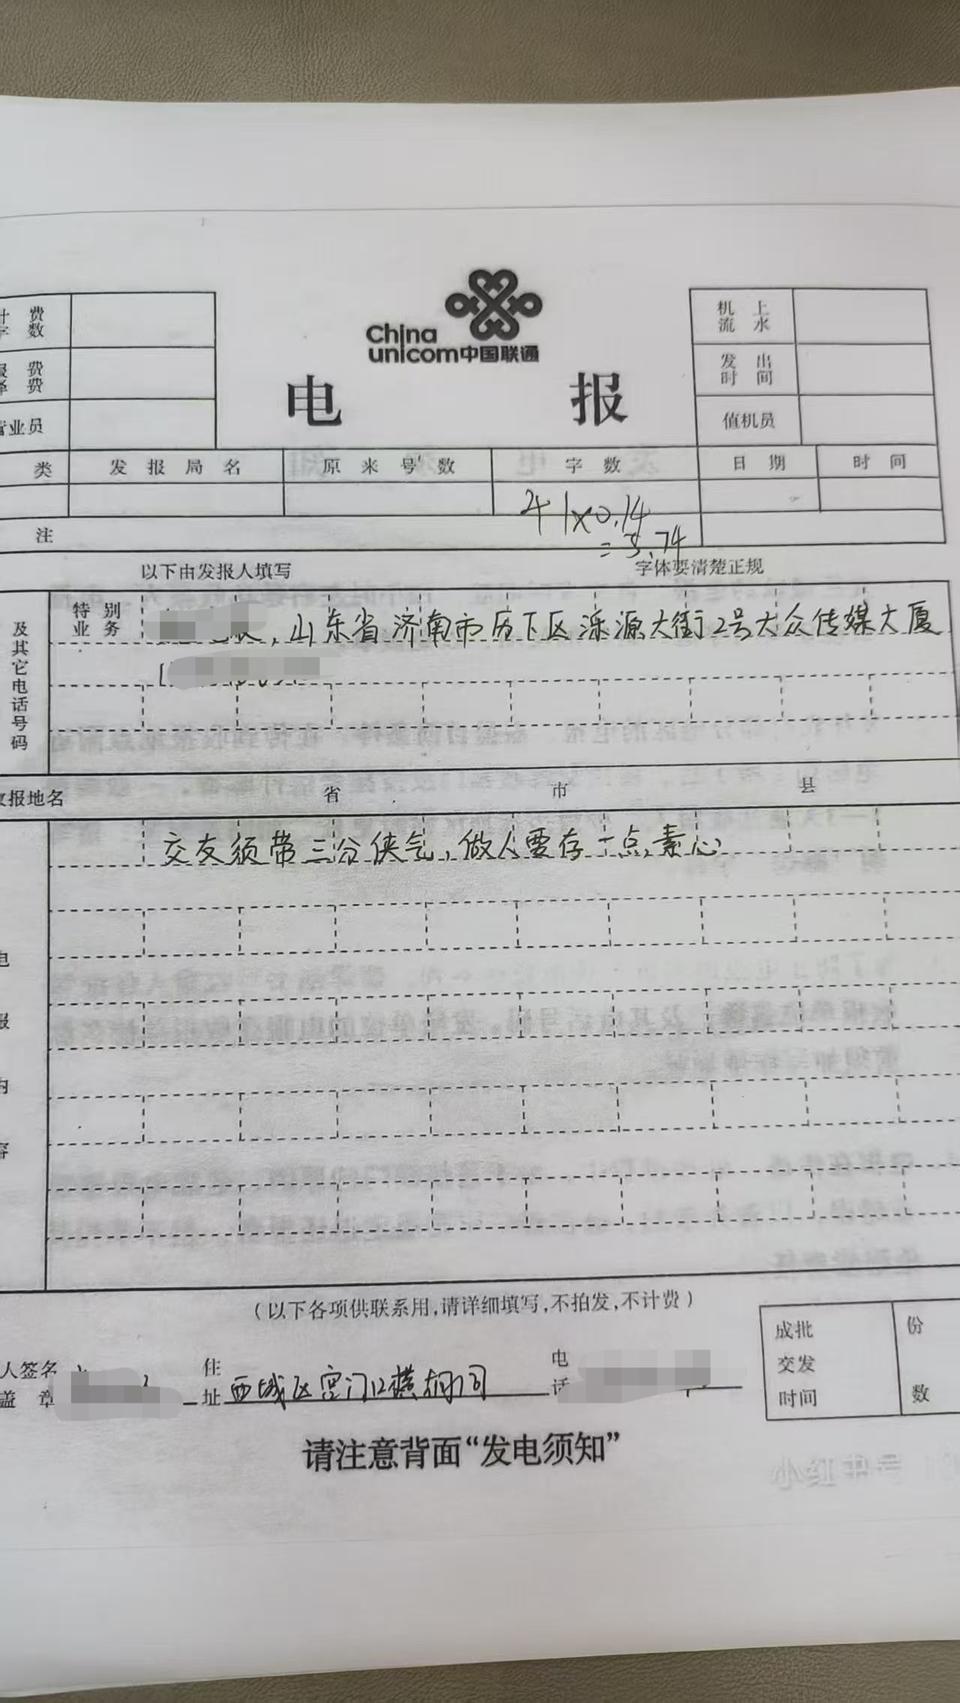 China
unicom中国联通
电 报
费
数
机 上
流 水
费
费
发 出
时 间
业员
值机员
类 发报局名 原来号数 字数 日期 时间
41×0.14
=5.74
注
以下由发报人填写 字体要清楚正规
特别
业务
山东省济南市历下区泺源大街2号大众传媒大厦
及其它电话号码
报地名 省 市 县
交友须带三分侠气,做人要存一点素心
电
报
内
容
(以下各项供联系用,请详细填写,不拍发,不计费)
成批
交发
时间
份
数
人签名
盖 章
住
址
西城区宫门口横胡同
电
话
请注意背面“发电须知”